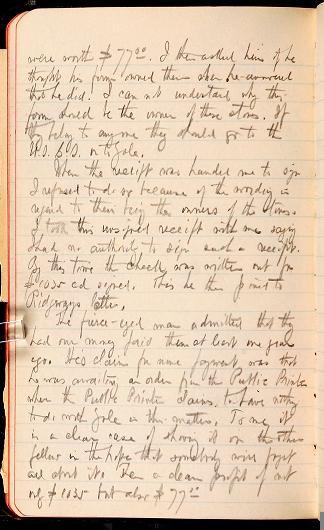 were worth $77.00. I then asked him if he
thought his firm owned them when he answered
that he did. I can not understand why this
firm should be the owner of these stones. If
they belong to anyone they should go to the
U.S.G.S. or to Gale.
When the receipt was handed me to sign
I refused to do so because of the wording in
regard to their being the owners of the stones
I took this unsigned receipt with me saying
I had no authority to sign such a receipt.
By this time the check was written out for
$1035 and signed. Then he then pointed to
Ridgways letter.
The fierce-eyed man admitted that they
had our money paid them at least one year
ago. His claim for non payment was that
he was awaiting an order from the Public Printer
when the Public Printer claims to have nothing
to do with Gale in this matter. To me it
is a clear case of shoving it on the other
fellow in the hope that somebody will forget
all about it. Then a clean profit of not
only $1035 but also $77.00